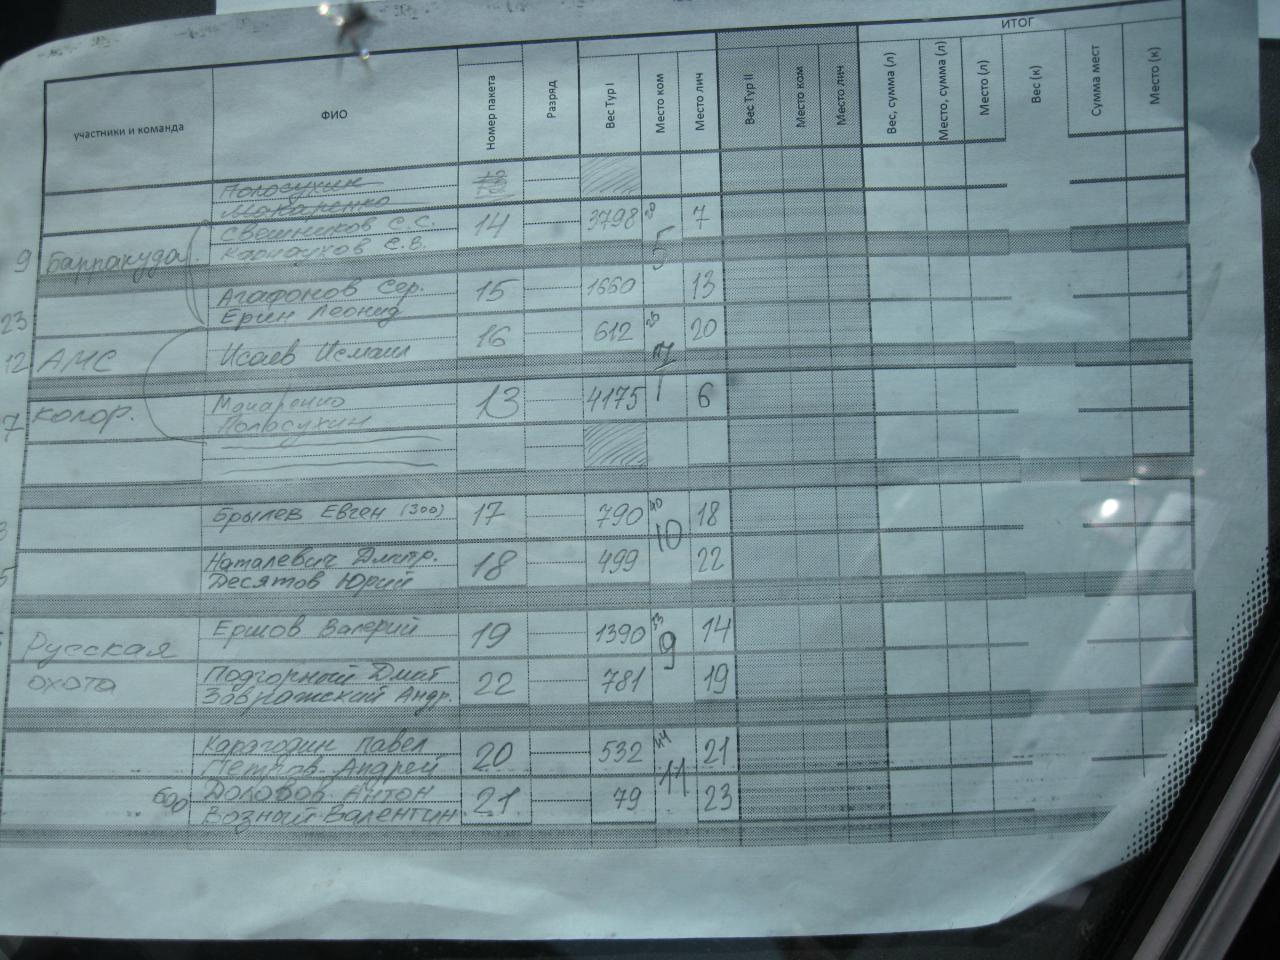 ИТОГ
участники и команда ФИО Номер пакета Разряд Вес Тур I Место ком Место лич Вес Тур II Место ком Место лич Вес, сумма (л) Место, сумма (л) Место (л) Вес (к) Сумма мест Место (к)
Полосухин
Макаренко
Свешников С.С. 14 3798 7
9 Барракуда Карнаухов С.В. 5
Агафонов Сер. 15 1660 13
23 Ерин Леонид
16 612 20
12 АМС Исаев Исмаил
7 колор. Макаренко 13 4175 6
Полосухин
Брылев Евген (300) 17 790 18
10
Наталевич Дмитр. 18 499 22
Десятов Юрий
Ершов Валерий 19 1390 14
Русская 9
охота Подгорный Дмит 22 781 19
Завражский Андр.
Карагодин Павел 20 532 21
Петров Андрей
11
600 Долобов Антон 21 79 23
Возный Валентин